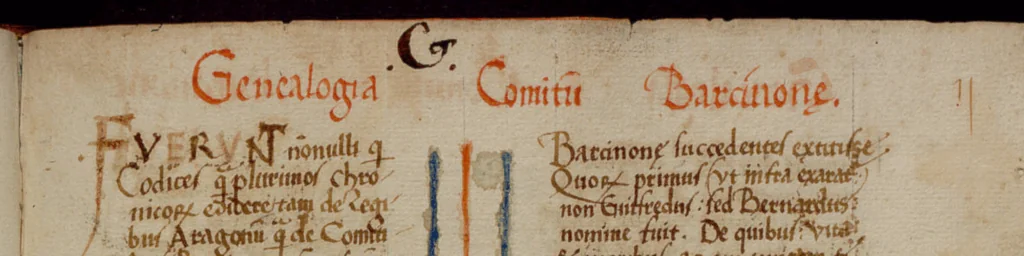 .G.
Genealogia Comitū Barcinonę.
FVERVNT nonulli q̄
Codices q̄ plurimos chro-
nicoꝝ edidere, tam de Regi-
bus Aragonū q̄ de Comiti
Barcinonę succedentes extitisse.
Quoꝝ primus (vt infra exarat)
non Guifredus: sed Bernardus:
nomine fuit. De quibus: vita